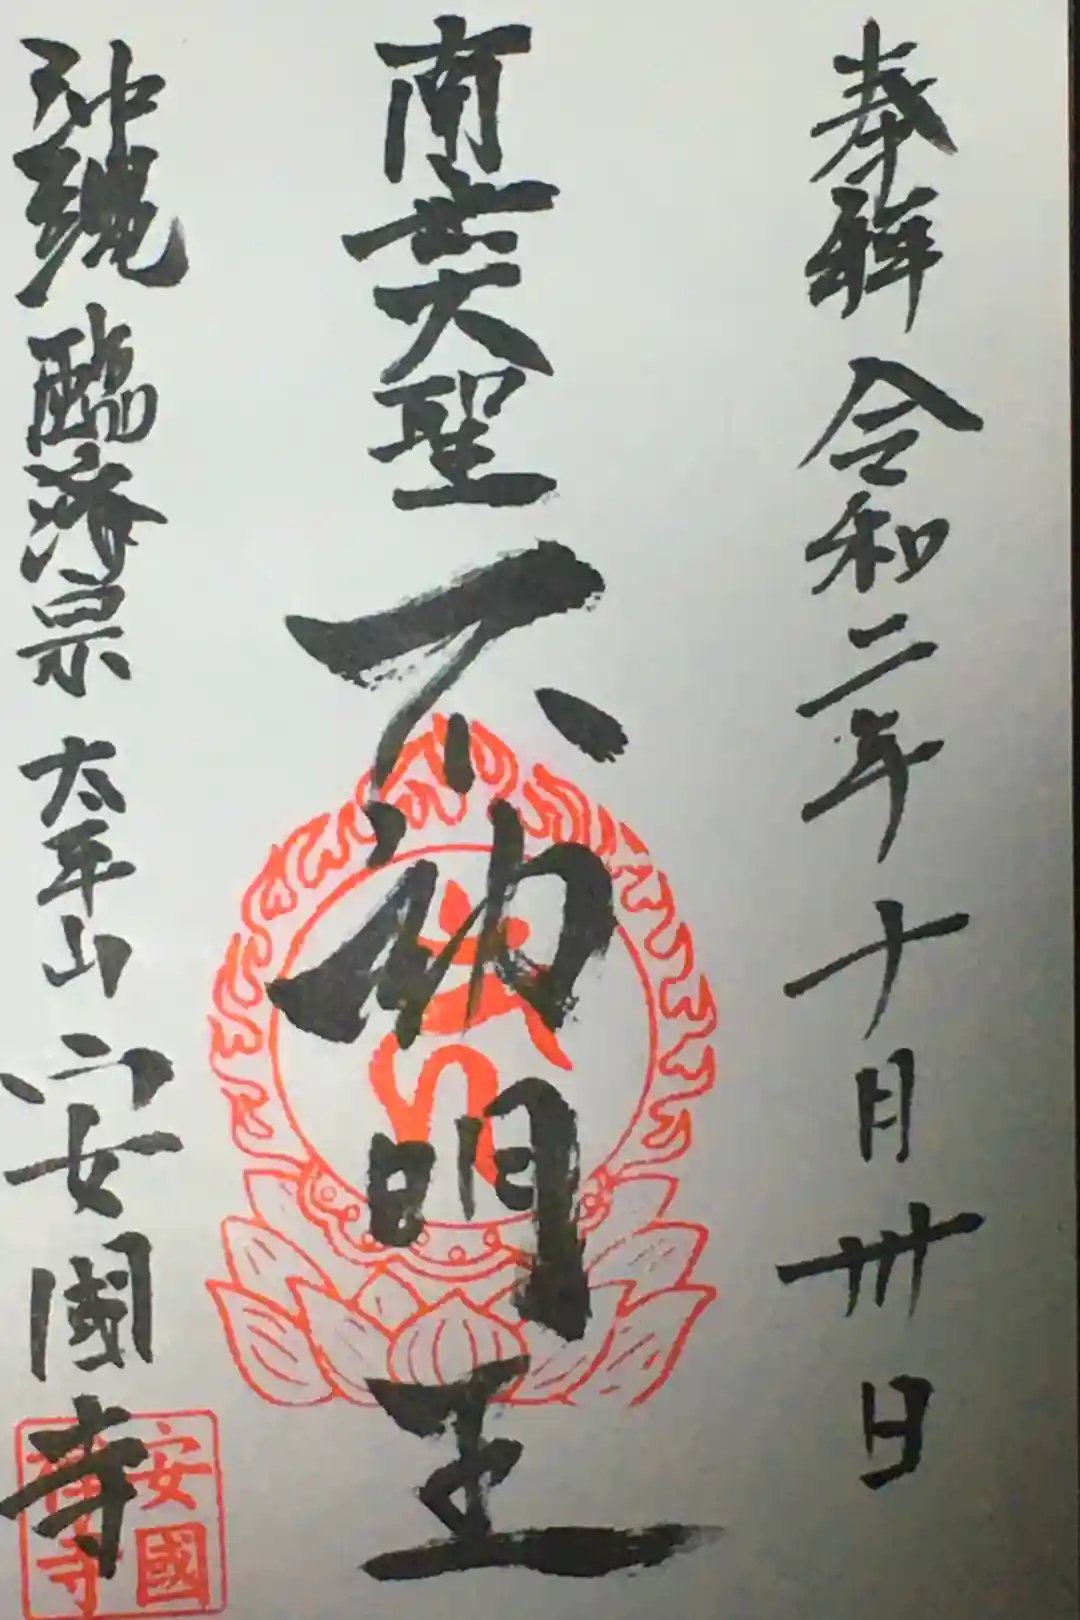 奉拜 令和二年十月卅日
南無大聖
不動明王
沖縄 臨済宗 太平山 安國寺
安國
禅寺